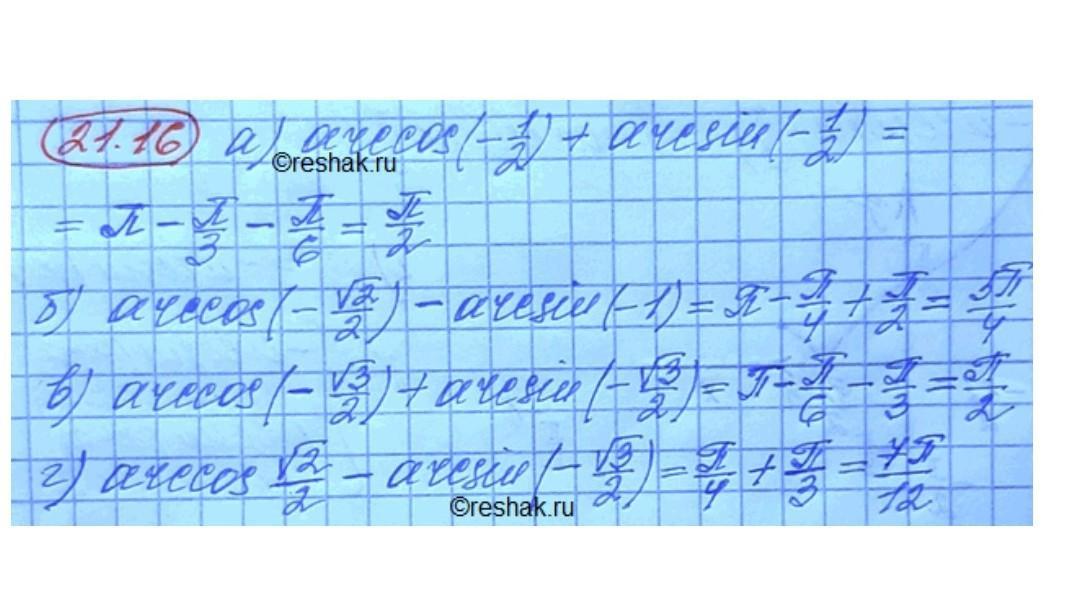 21.16 а) arccos(-1/2) + arcsin(-1/2) =
©reshak.ru
= π - π/3 - π/6 = π/2
б) arccos(-√2/2) - arcsin(-1) = π - π/4 + π/2 = 5π/4
в) arccos(-√3/2) + arcsin(-√3/2) = π - π/6 - π/3 = π/2
г) arccos √2/2 - arcsin(-√3/2) = π/4 + π/3 = 7π/12
©reshak.ru